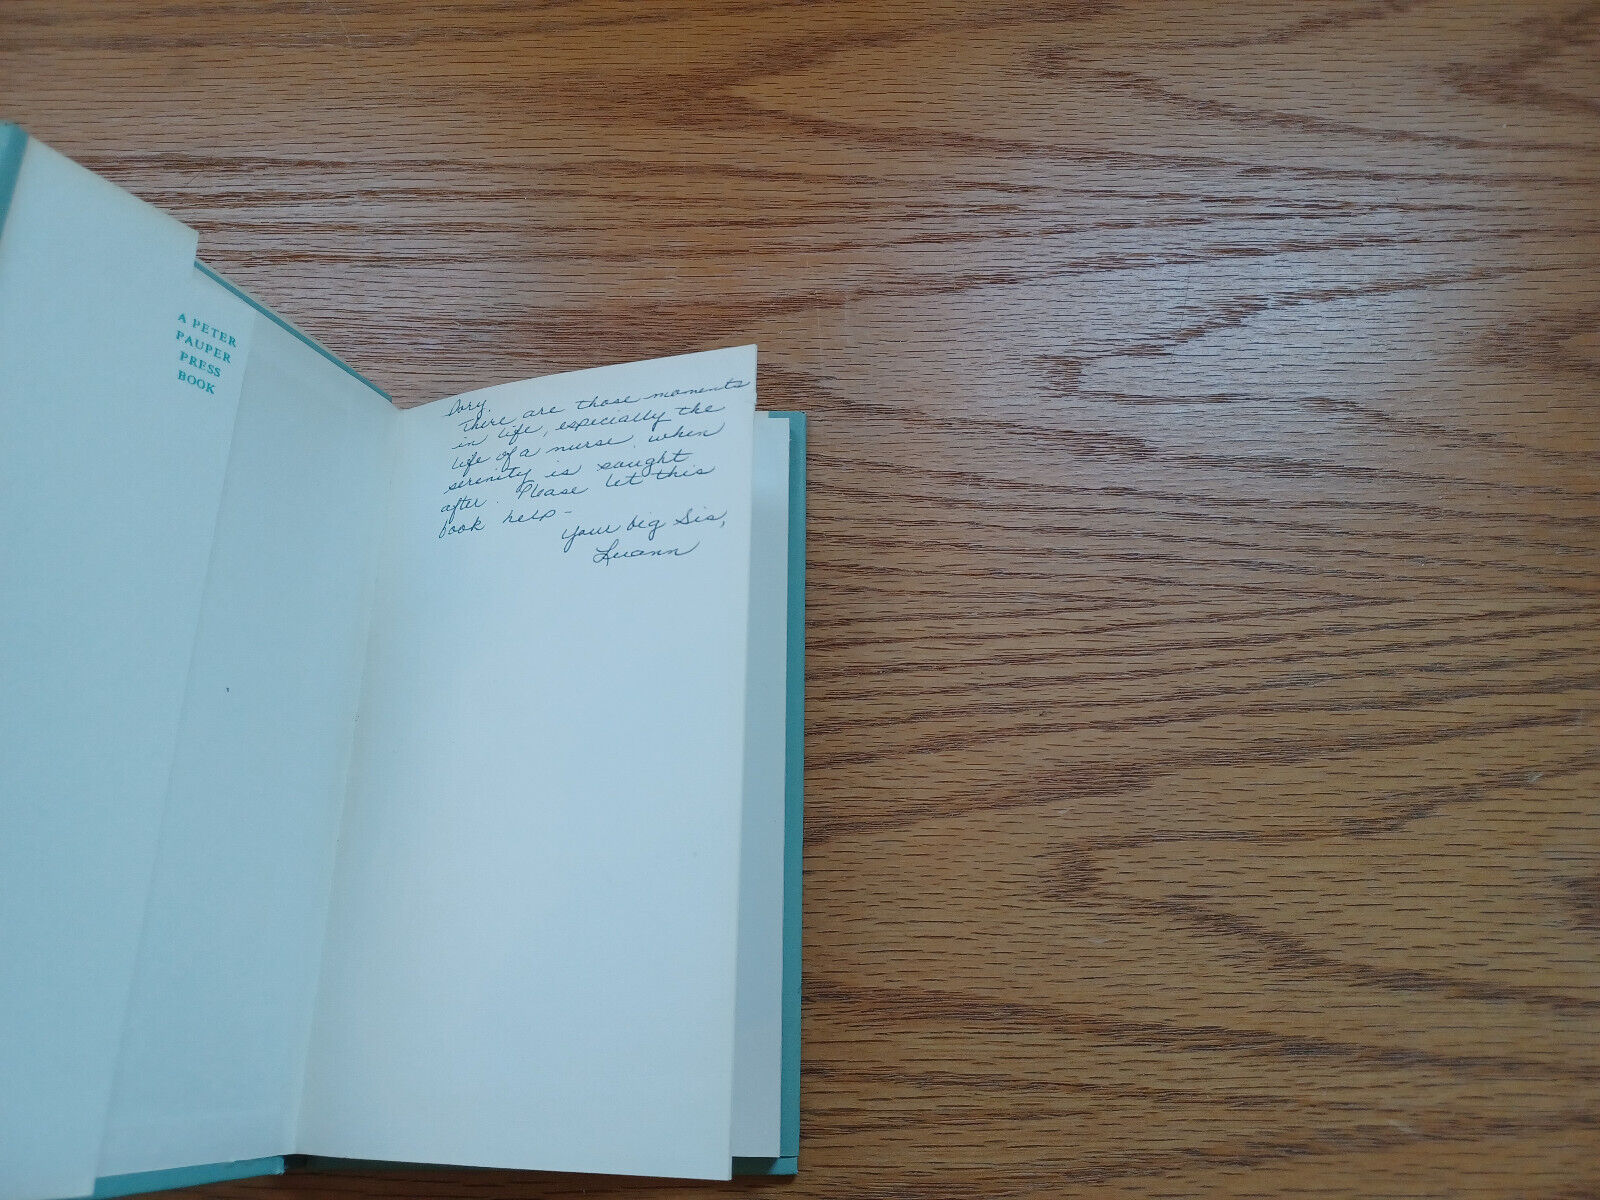 A PETER
PAUPER
PRESS
BOOK
Dory,
There are those moments
in life, especially the
life of a nurse, when
serenity is saught
after. Please let this
book help -
Your big Sis,
Luann